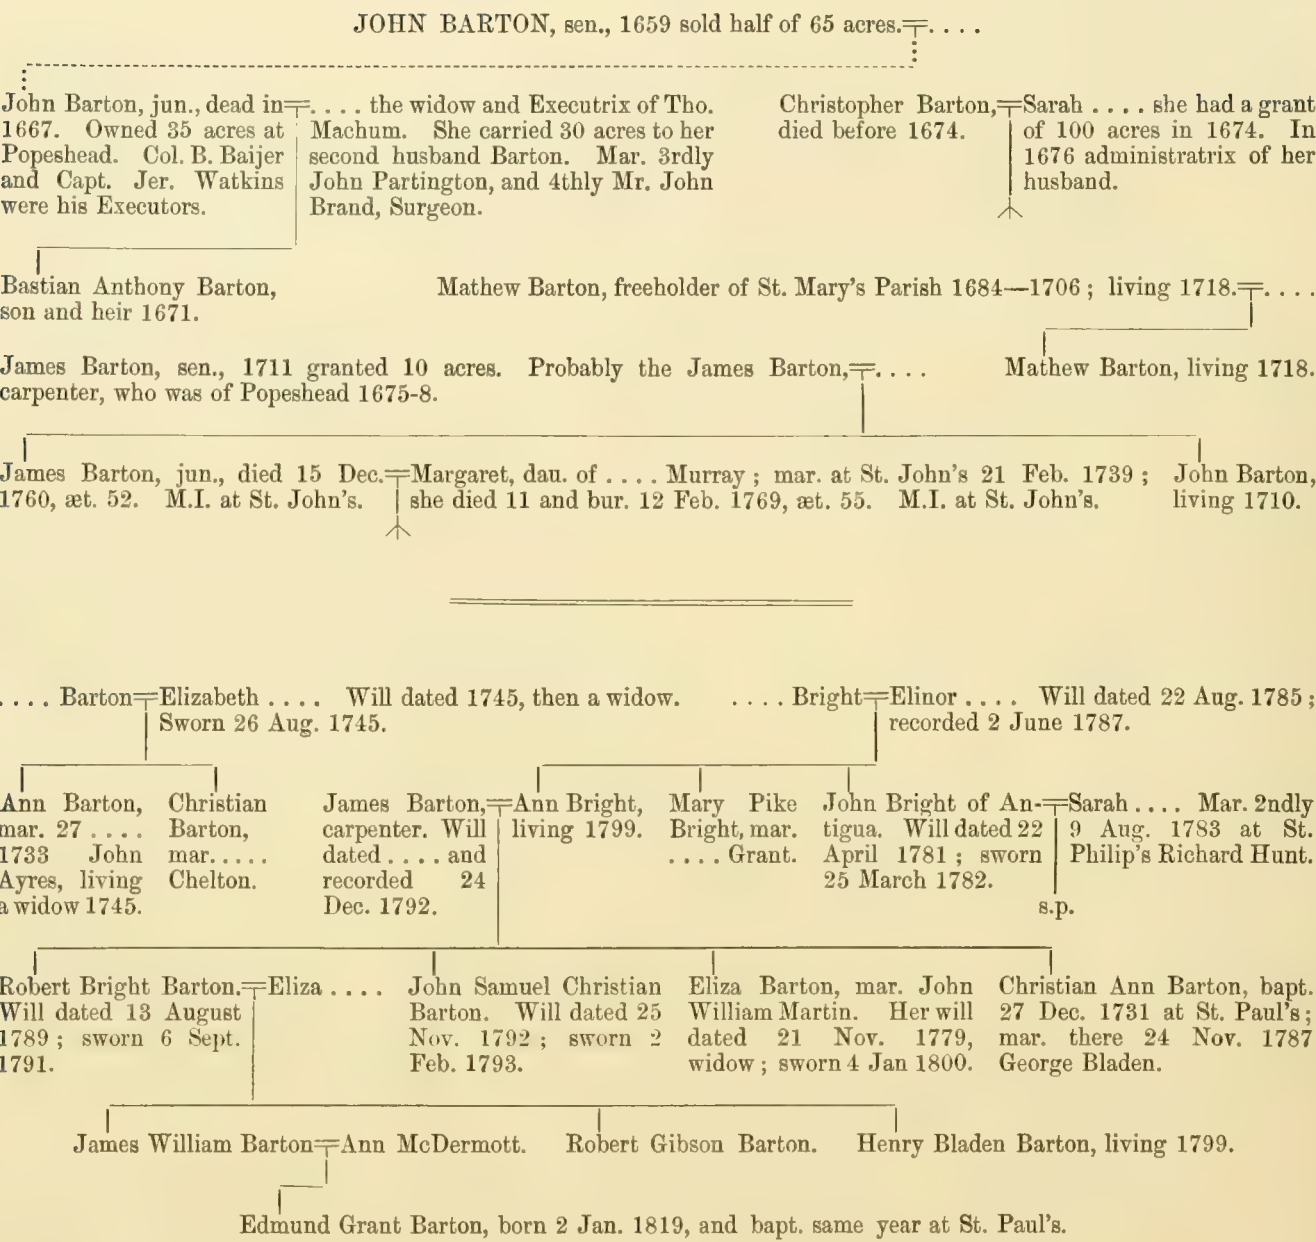 JOHN BARTON, sen., 1659 sold half of 65 acres.=. . . .
John Barton, jun., dead in=
1667. Owned 35 acres at
Popeshead. Col. B. Baijer
and Capt. Jer. Watkins
were his Executors.
. . . . the widow and Executrix of Tho.
Machum. She carried 30 acres to her
second husband Barton. Mar. 3rdly
John Partington, and 4thly Mr. John
Brand, Surgeon.
Christopher Barton,=
died before 1674.
Sarah . . . . she had a grant
of 100 acres in 1674. In
1676 administratrix of her
husband.
Bastian Anthony Barton,
son and heir 1671.
Mathew Barton, freeholder of St. Mary's Parish 1684—1706 ; living 1718.=. . . .
James Barton, sen., 1711 granted 10 acres. Probably the James Barton,=. . . .
carpenter, who was of Popeshead 1675-8.
Mathew Barton, living 1718.
James Barton, jun., died 15 Dec.=
1760, æt. 52. M.I. at St. John's.
Margaret, dau. of . . . . Murray ; mar. at St. John's 21 Feb. 1739 ;
she died 11 and bur. 12 Feb. 1769, æt. 55. M.I. at St. John's.
John Barton,
living 1710.
. . . . Barton=Elizabeth . . . . Will dated 1745, then a widow.
Sworn 26 Aug. 1745.
. . . . Bright=Elinor . . . . Will dated 22 Aug. 1785 ;
recorded 2 June 1787.
Ann Barton,
mar. 27 . . . .
1733 John
Ayres, living
a widow 1745.
Christian
Barton,
mar. . . . .
Chelton.
James Barton,=
carpenter. Will
dated . . . . and
recorded 24
Dec. 1792.
Ann Bright,
living 1799.
Mary Pike
Bright, mar.
. . . . Grant.
John Bright of An-=
tigua. Will dated 22
April 1781 ; sworn
25 March 1782.
Sarah . . . . Mar. 2ndly
9 Aug. 1783 at St.
Philip's Richard Hunt.
s.p.
Robert Bright Barton.=Eliza . . . .
Will dated 13 August
1789 ; sworn 6 Sept.
1791.
John Samuel Christian
Barton. Will dated 25
Nov. 1792 ; sworn 2
Feb. 1793.
Eliza Barton, mar. John
William Martin. Her will
dated 21 Nov. 1779,
widow ; sworn 4 Jan 1800.
Christian Ann Barton, bapt.
27 Dec. 1731 at St. Paul's ;
mar. there 24 Nov. 1787
George Bladen.
James William Barton=Ann McDermott.
Robert Gibson Barton.
Henry Bladen Barton, living 1799.
Edmund Grant Barton, born 2 Jan. 1819, and bapt. same year at St. Paul's.